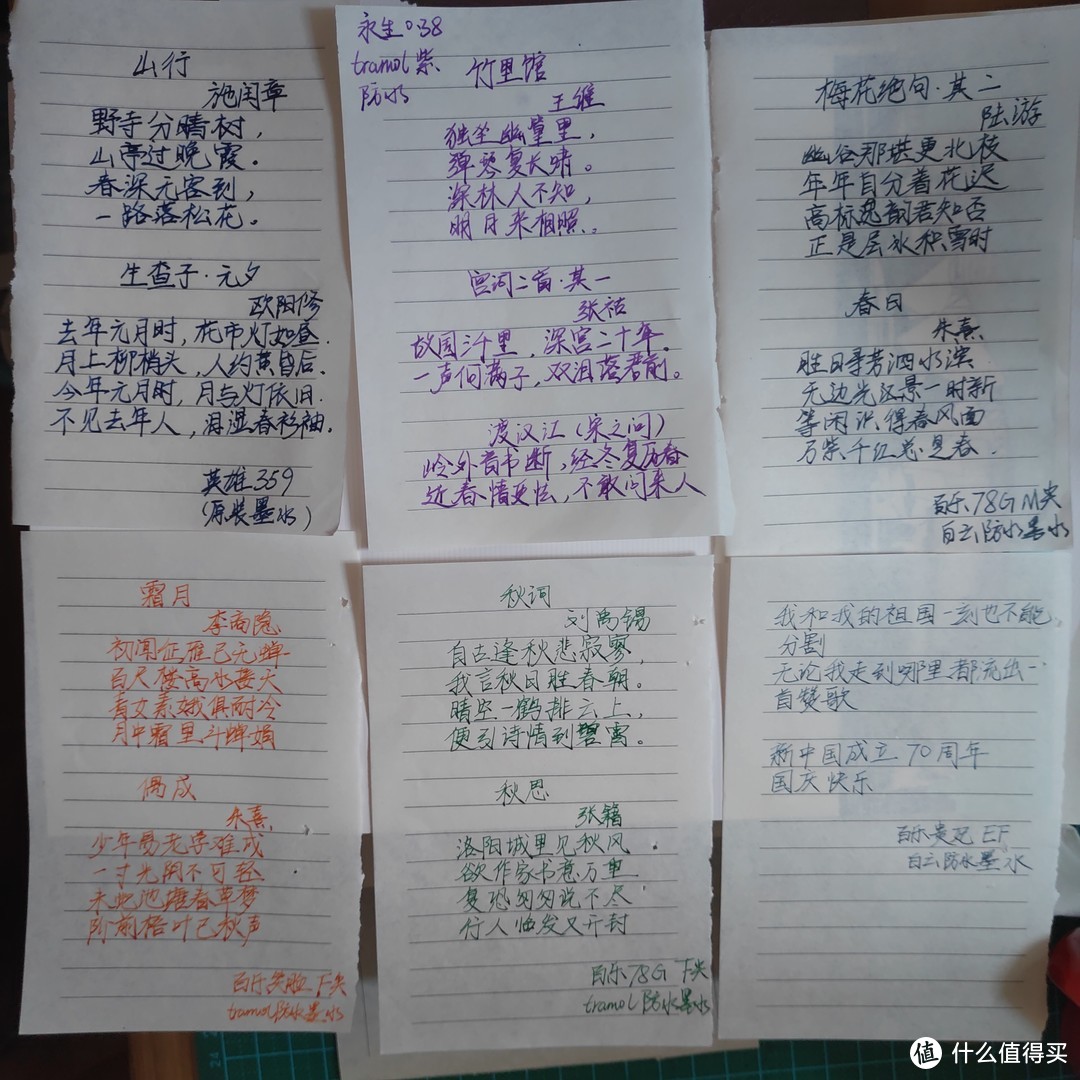 山行
施闰章
野寺分晴树，
山亭过晚霞。
春深无客到，
一路落松花。
生查子·元夕
欧阳修
去年元月时，花市灯如昼.
月上柳梢头，人约黄昏后.
今年元月时，月与灯依旧.
不见去年人，泪湿春衫袖.
英雄359
（原装墨水）
永生038
tramol 紫
防水
竹里馆
王维
独坐幽篁里，
弹琴复长啸。
深林人不知，
明月来相照。
宫词二首·其一
张祜
故国三千里，深宫二十年.
一声何满子，双泪落君前。
渡汉江（宋之问）
岭外音书断，经冬复历春
近乡情更怯，不敢问来人
梅花绝句·其二
陆游
幽谷那堪更北枝
年年自分着花迟
高标逸韵君知否
正是层冰积雪时
春日
朱熹
胜日寻芳泗水滨
无边光景一时新
等闲识得春风面
万紫千红总是春.
百乐78G M尖
白云防水墨水
霜月
李商隐
初闻征雁已无蝉
百尺楼高水接天
青女素娥俱耐冷
月中霜里斗婵娟
偶成
朱熹
少年易老学难成
一寸光阴不可轻
未觉池塘春草梦
阶前梧叶已秋声
百乐笑脸 F尖
tramol防水墨水
秋词
刘禹锡
自古逢秋悲寂寥，
我言秋日胜春朝。
晴空一鹤排云上，
便引诗情到碧霄。
秋思
张籍
洛阳城里见秋风
欲作家书意万重
复恐匆匆说不尽
行人临发又开封
百乐78G F尖
tramol防水墨水
我和我的祖国一刻也不能
分割
无论我走到哪里都流出一
首赞歌
新中国成立70周年
国庆快乐
百乐贵妃 EF
白云防水墨水
值 什么值得买